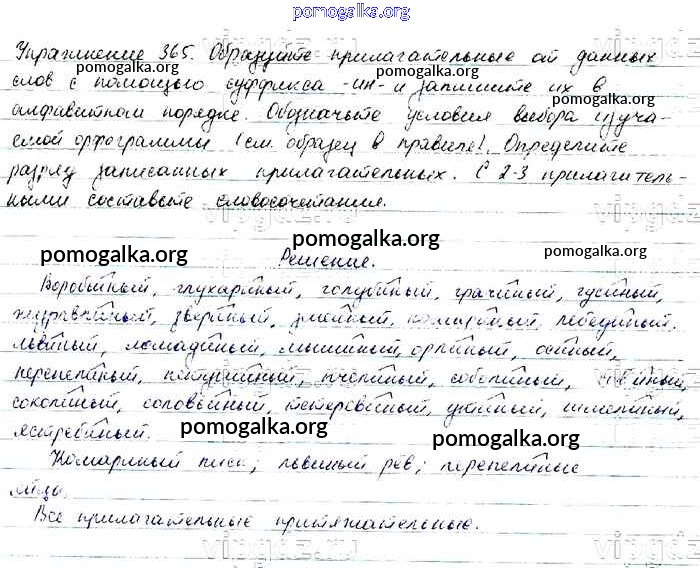 pomogalka.org
Упражнение 365. Образуйте прилагательные от данных
слов с помощью суффикса -ин- и запишите их в
алфавитном порядке. Обозначьте условия выбора изуча-
емой орфограммы (см. образец в правиле). Определите
разряд записанных прилагательных. С 2-3 прилагатель-
ными составьте словосочетания.
Решение.
Воробьиный, глухариный, голубиный, грачиный, гусиный,
журавлиный, звериный, змеиный, комариный, лебединый,
львиный, лошадиный, мышиный, орлиный, осиный,
перепелиный, петушиный, пчелиный, соболиный, совиный,
соколиный, соловьиный, тетеревиный, утиный, шмелиный,
ястребиный.
Комариный писк; львиный рёв; перепелиные
яйца.
Все прилагательные притяжательные.
pomogalka.org
pomogalka.org
pomogalka.org
pomogalka.org
pomogalka.org
pomogalka.org
pomogalka.org
pomogalka.org
pomogalka.org